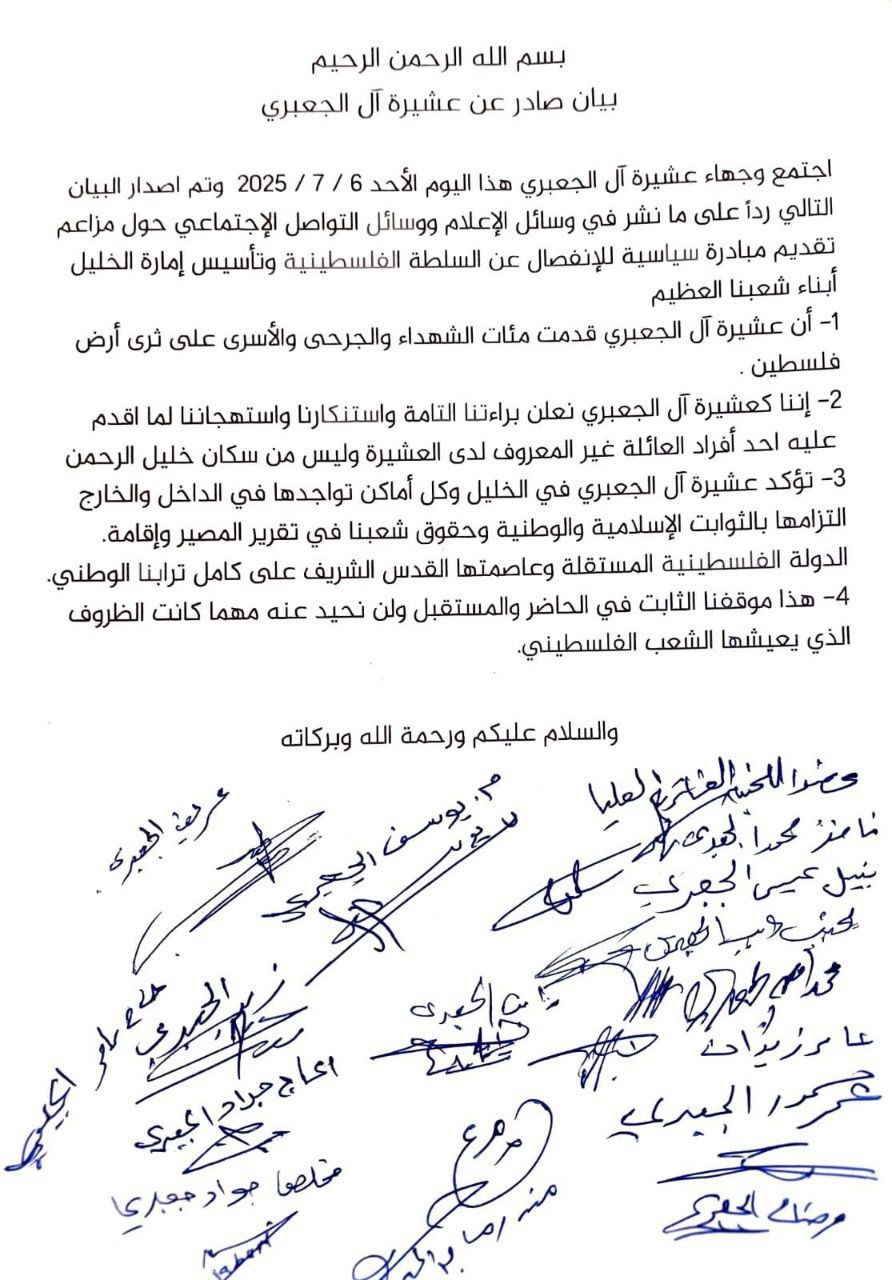 بسم الله الرحمن الرحيم
بيان صادر عن عشيرة آل الجعبري
اجتمع وجهاء عشيرة آل الجعبري هذا اليوم الأحد 6 / 7 / 2025 وتم اصدار البيان
التالي رداً على ما نشر في وسائل الإعلام ووسائل التواصل الإجتماعي حول مزاعم
تقديم مبادرة سياسية للإنفصال عن السلطة الفلسطينية وتأسيس إمارة الخليل
أبناء شعبنا العظيم
1- أن عشيرة آل الجعبري قدمت مئات الشهداء والجرحى والأسرى على ثرى أرض
فلسطين .
2- إننا كعشيرة آل الجعبري نعلن براءتنا التامة واستنكارنا واستهجاننا لما اقدم
عليه احد أفراد العائلة غير المعروف لدى العشيرة وليس من سكان خليل الرحمن
3- تؤكد عشيرة آل الجعبري في الخليل وكل أماكن تواجدها في الداخل والخارج
التزامها بالثوابت الإسلامية والوطنية وحقوق شعبنا في تقرير المصير وإقامة.
الدولة الفلسطينية المستقلة وعاصمتها القدس الشريف على كامل ترابنا الوطني.
4- هذا موقفنا الثابت في الحاضر والمستقبل ولن نحيد عنه مهما كانت الظروف
الذي يعيشها الشعب الفلسطيني.
والسلام عليكم ورحمة الله وبركاته
العليا
م. يوسف الجعبري
الجعبري
نبيل عيسى الجعبري
الجعبري
عامر زيدان
الحاج جواد الجعبري
الجعبري
جواد جعبري
الجعبري